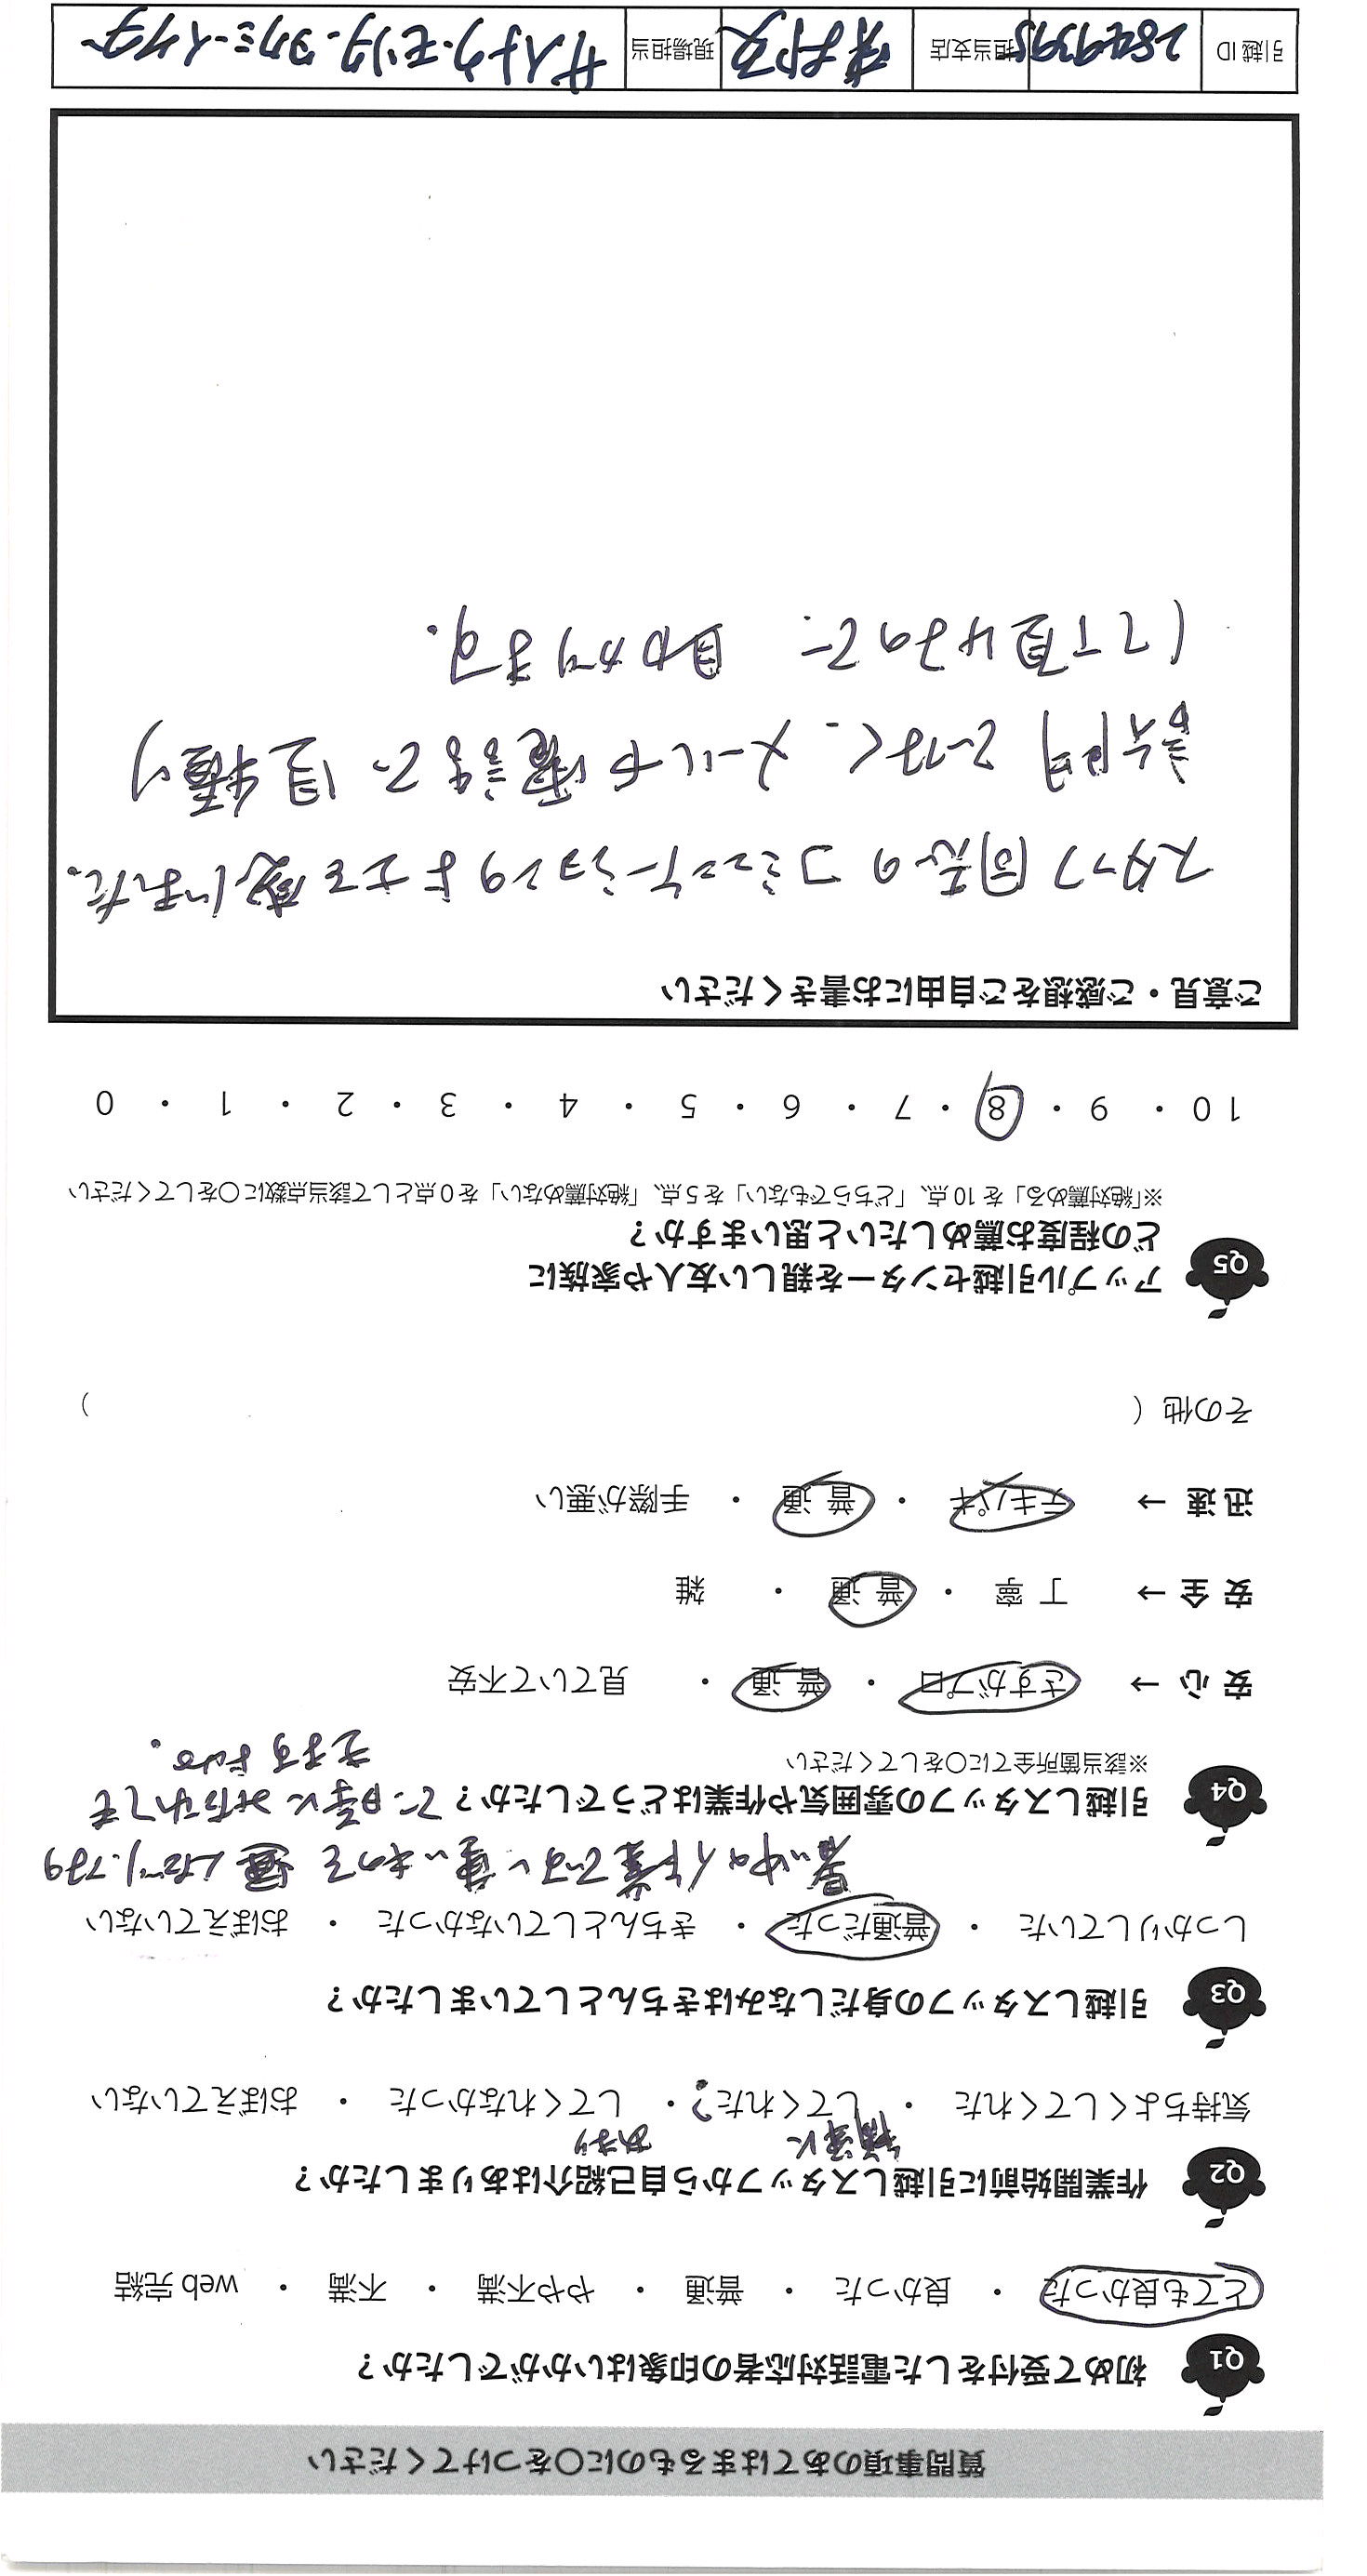 質問事項のあてはまるものに〇をつけてください
Q1 初めて受付をした電話対応者の印象はいかがでしたか？
とても良かった ・ 良かった ・ 普通 ・ やや不満 ・ 不満 ・ web完結
Q2 作業開始前に引越しスタッフから自己紹介はありましたか？
気持ちよくしてくれた ・ してくれた？ ・ してくれなかった ・ おぼえていない
Q3 引越しスタッフの身だしなみはきちんとしていましたか？
しっかりしていた ・ 普通だった ・ きちんとしていなかった ・ おぼえていない
暑い中の作業ですし重いものを運んだり、
Q4 引越しスタッフの雰囲気や作業はどうでしたか？
※該当箇所全てに〇をしてください
安心 → さすがプロ ・ 普通 ・ 見ていて不安
安全 → 丁寧 ・ 普通 ・ 雑
迅速 → テキパキ ・ 普通 ・ 手際が悪い
その他（ ）
Q5 アップル引越センターを親しい友人や家族に
どの程度お薦めしたいと思いますか？
※「絶対薦める」を10点、「どちらでもない」を5点、「絶対薦めない」を0点として該当点数に〇をしてください
10 ・ 9 ・ 8 ・ 7 ・ 6 ・ 5 ・ 4 ・ 3 ・ 2 ・ 1 ・ 0
ご意見・ご感想をご自由にお書きください
スタッフ同志のコミュニケーションのよさを感じました。
訪問でなく、メールや電話で見積り
して頂けるので、助かります。
引越ID 2849395 担当支店 現場担当